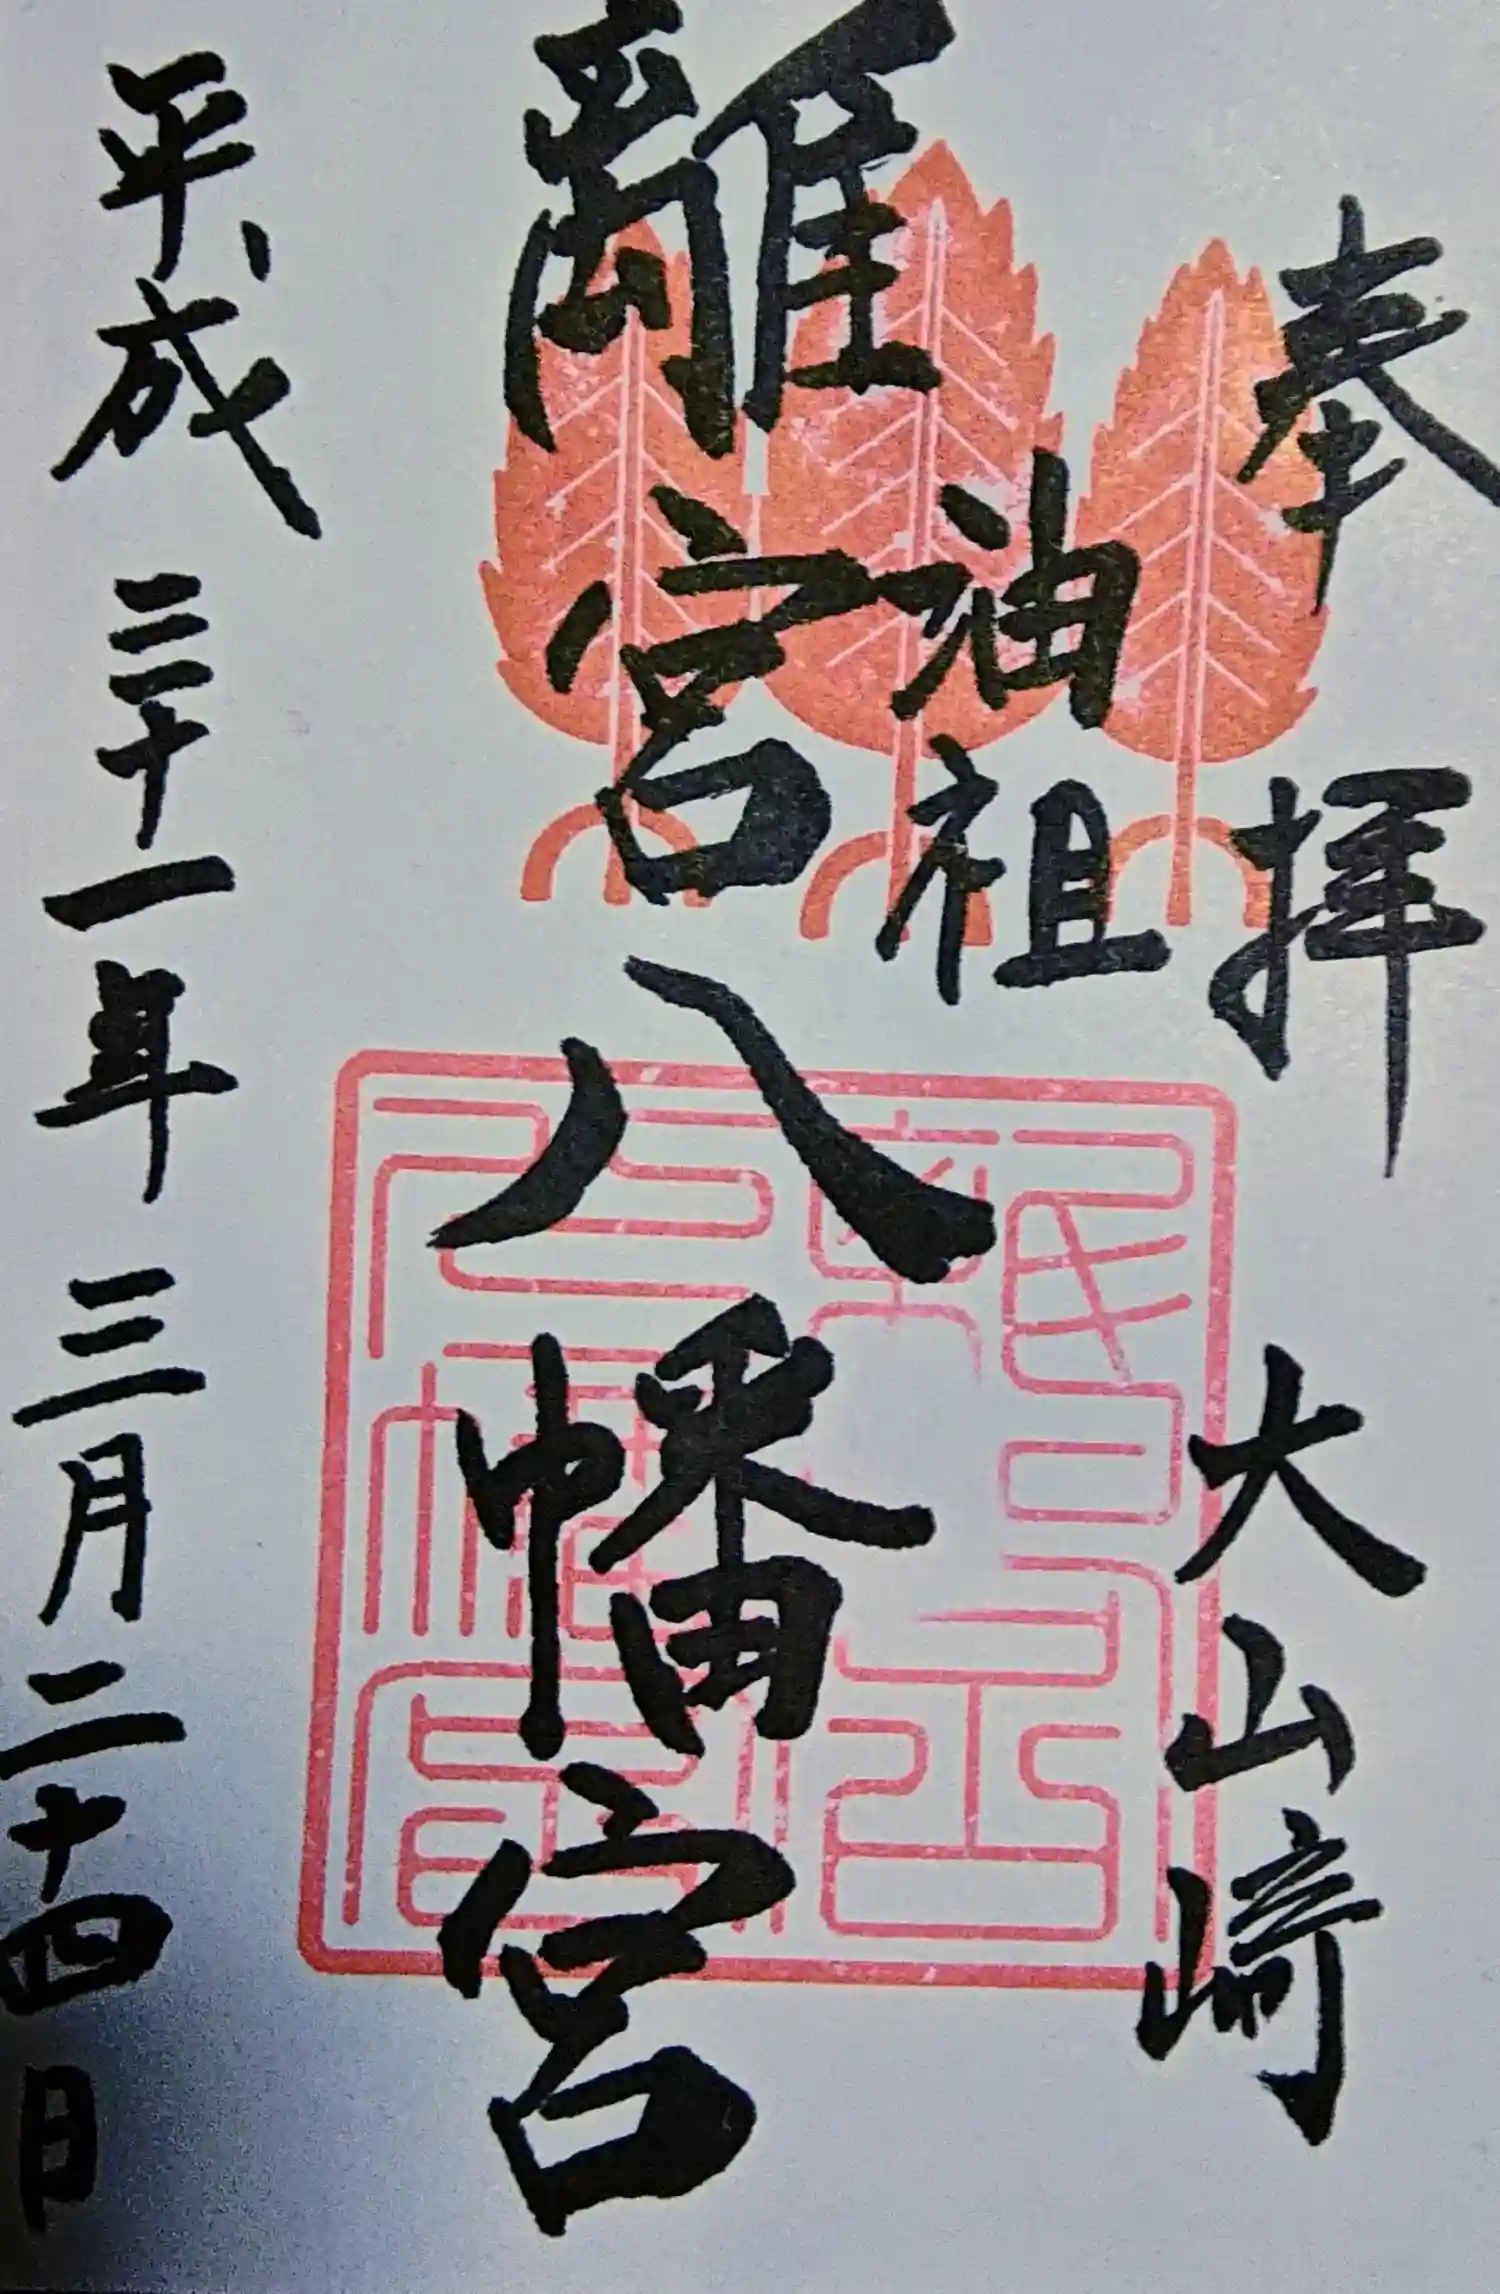 奉拝 大山崎
油祖
離宮八幡宮
平成三十一年三月二十四日